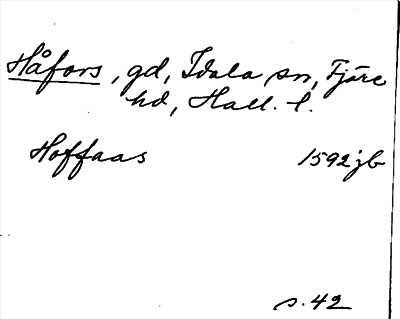 Håfors, gd, Idala sn, Fjäre
hd, Hall. l.
Hoffaas 1592 jb
s. 42